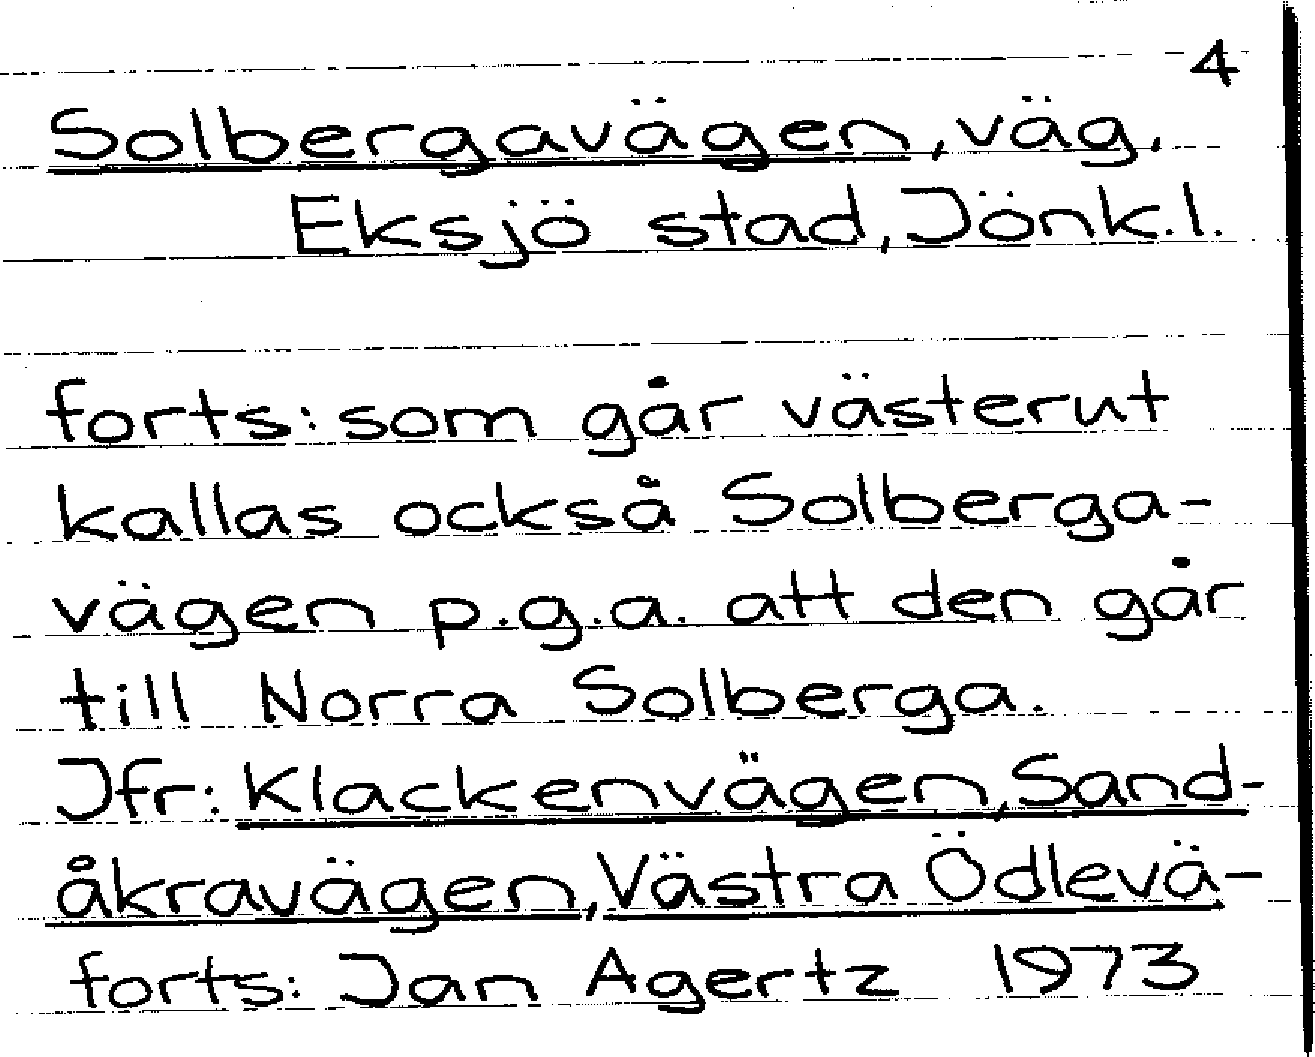 4
Solbergavägen, väg,
Eksjö stad, Jönk.l.
forts: som går västerut
kallas också Solberga-
vägen p.g.a. att den går
till Norra Solberga.
Jfr: Klackenvägen, Sand-
åkravägen, Västra Ödlevä-
forts: Jan Agertz 1973